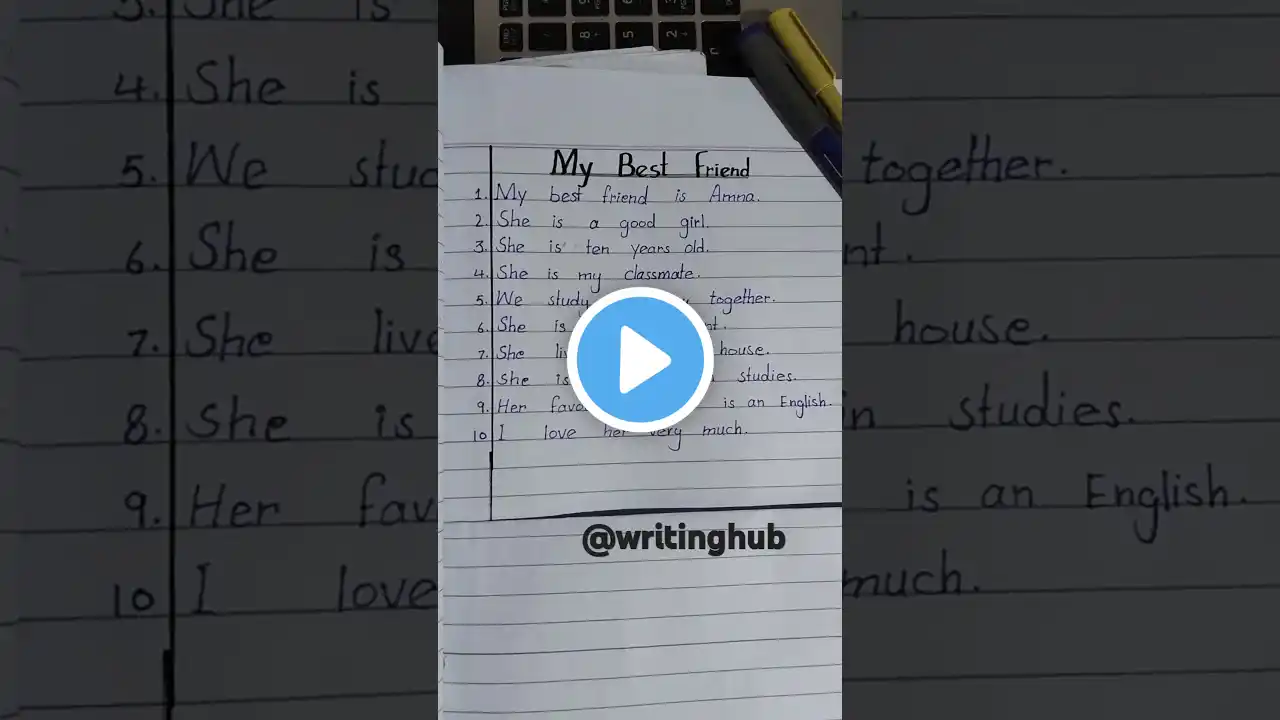 My Best Friend
1. My best friend is Amna.
2. She is a good girl.
3. She is ten years old.
4. She is my classmate.
5. We study together.
6. She is
7. She house.
8. She is studies.
9. Her is an English.
10 I love her very much.
@writinghub